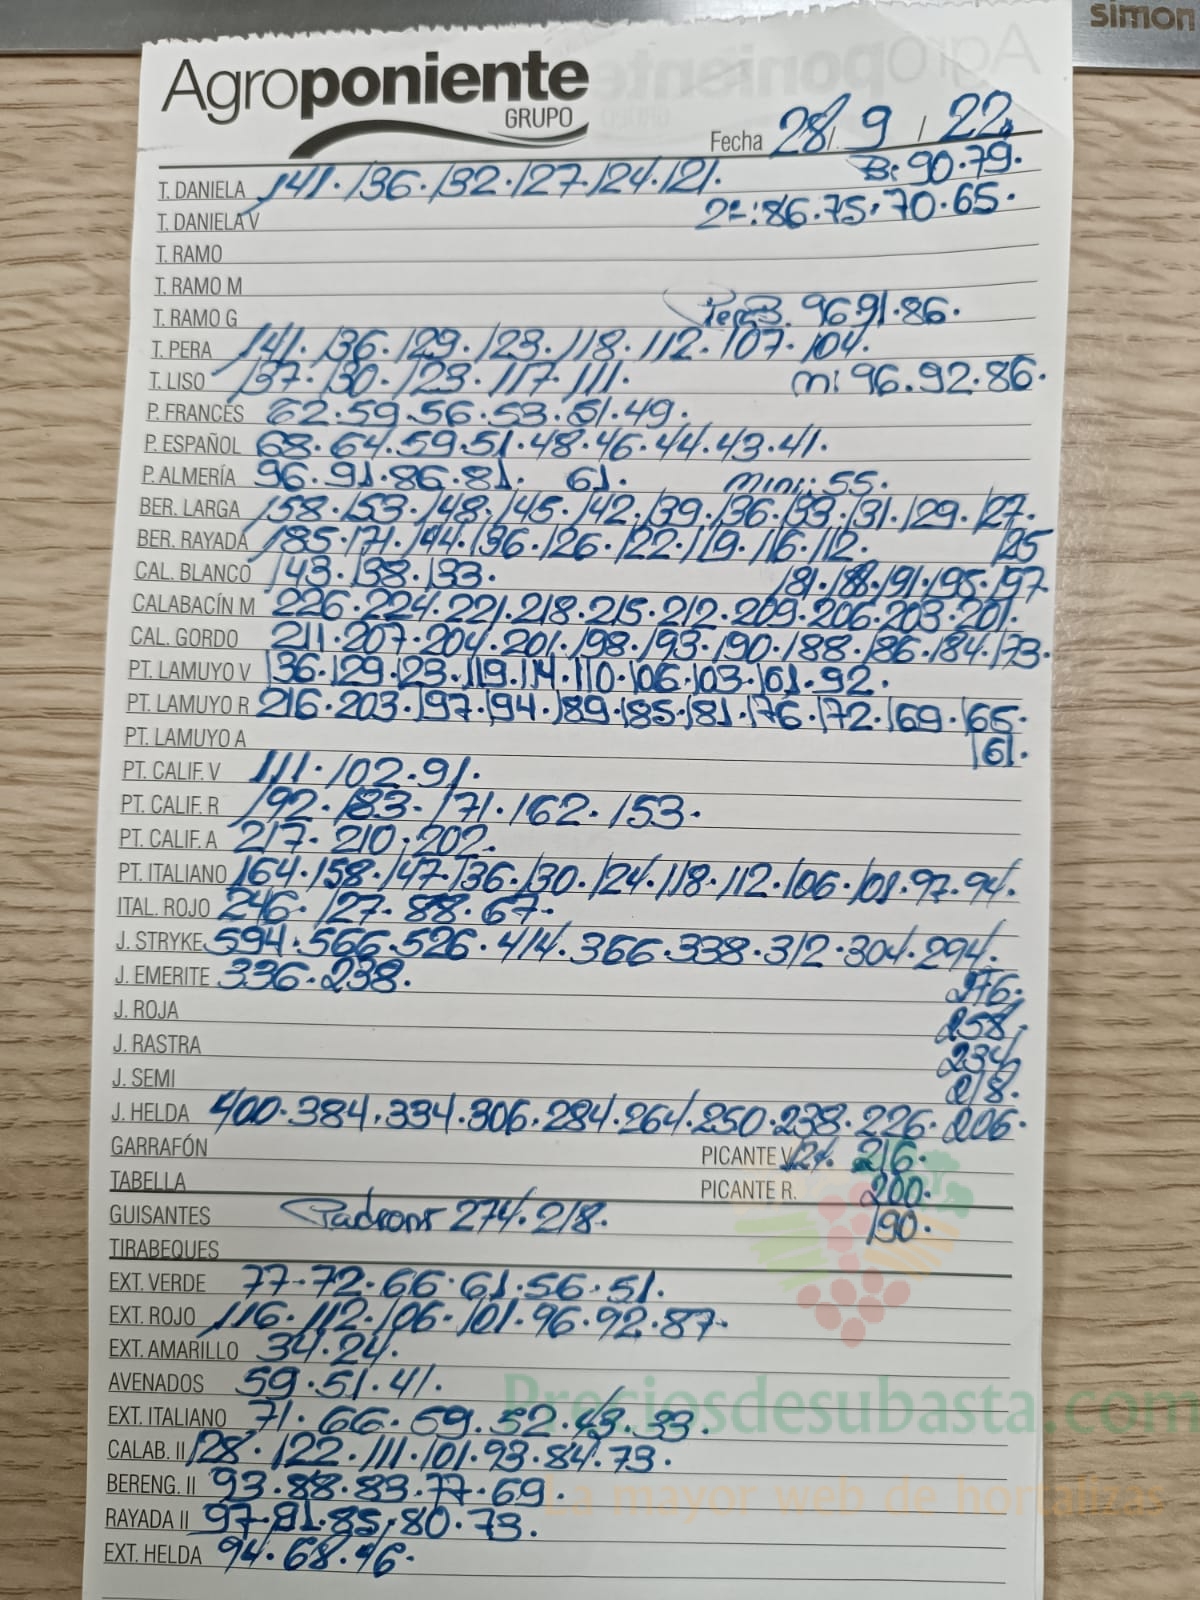 simon
Agroponiente
GRUPO
Fecha 28/ 9 / 22
B: 90.79.
T. DANIELA 141. 136. 132. 127. 124. 121.
T. DANELA V 2ª: 86.75.70.65.
T. RAMO
T. RAMO M
T. RAMO G Pera B. 96 91.86.
T. PERA 141. 136. 129. 123. 118. 112. 107. 104.
T. LISO 137. 130. 123. 117. 111. m: 96.92.86.
P. FRANCÉS 62.59.56.53.51.49.
P. ESPAÑOL 68.64.59.51.48.46.44.43.41.
P. ALMERÍA 96.91.86.81. 61. mini: 55.
BER. LARGA 158.153.148.145.142.139.136.133.131.129.127.
BER. RAYADA 185.171.144.136.126.122.119.116.112. 125
CAL. BLANCO 143.138.133. 181.188.191.195.197
CALABACÍN M 226.224.221.218.215.212.209.206.203.201.
CAL. GORDO 211.207.204.201.198.193.190.188.186.184.173.
PT. LAMUYO V 136.129.123.119.114.110.106.103.161.92.
PT. LAMUYO R 216.203.197.194.189.185.181.176.172.169.165.
PT. LAMUYO A 161.
PT. CALIF. V 111. 102.91.
PT. CALIF. R 192. 183. 171. 162. 153.
PT. CALIF. A 217. 210. 202.
PT. ITALIANO 164.158.147.136.130.124.118.112.106.101.97.94.
ITAL. ROJO 246. 127. 88. 67.
J. STRYKE 594.566.526.414.366.338.312.304.294.
J. EMERITE 336.238. 276.
J. ROJA 258.
J. RASTRA 234
J. SEMI 218.
J. HELDA 400.384.334.306.284.264.250.238.226.206.
GARRAFÓN PICANTE V. 121. 216.
TABELLA PICANTE R. 200.
GUISANTES Padrons 274.218. 190.
TIRABEQUES
EXT. VERDE 77.72.66.61.56.51.
EXT. ROJO 116.112.106.101.96.92.87.
EXT. AMARILLO 34.24.
AVENADOS 59.51.41.
Preciosdesubasta.com
EXT. ITALIANO 71.66.59.52.43.33.
CALAB. II 128.122.111.101.93.84.73.
BERENG. II 93.88.83.77.69.
La mayor web de hortalizas
RAYADA II 97.91.85.80.73.
EXT. HELDA 94.68.46.